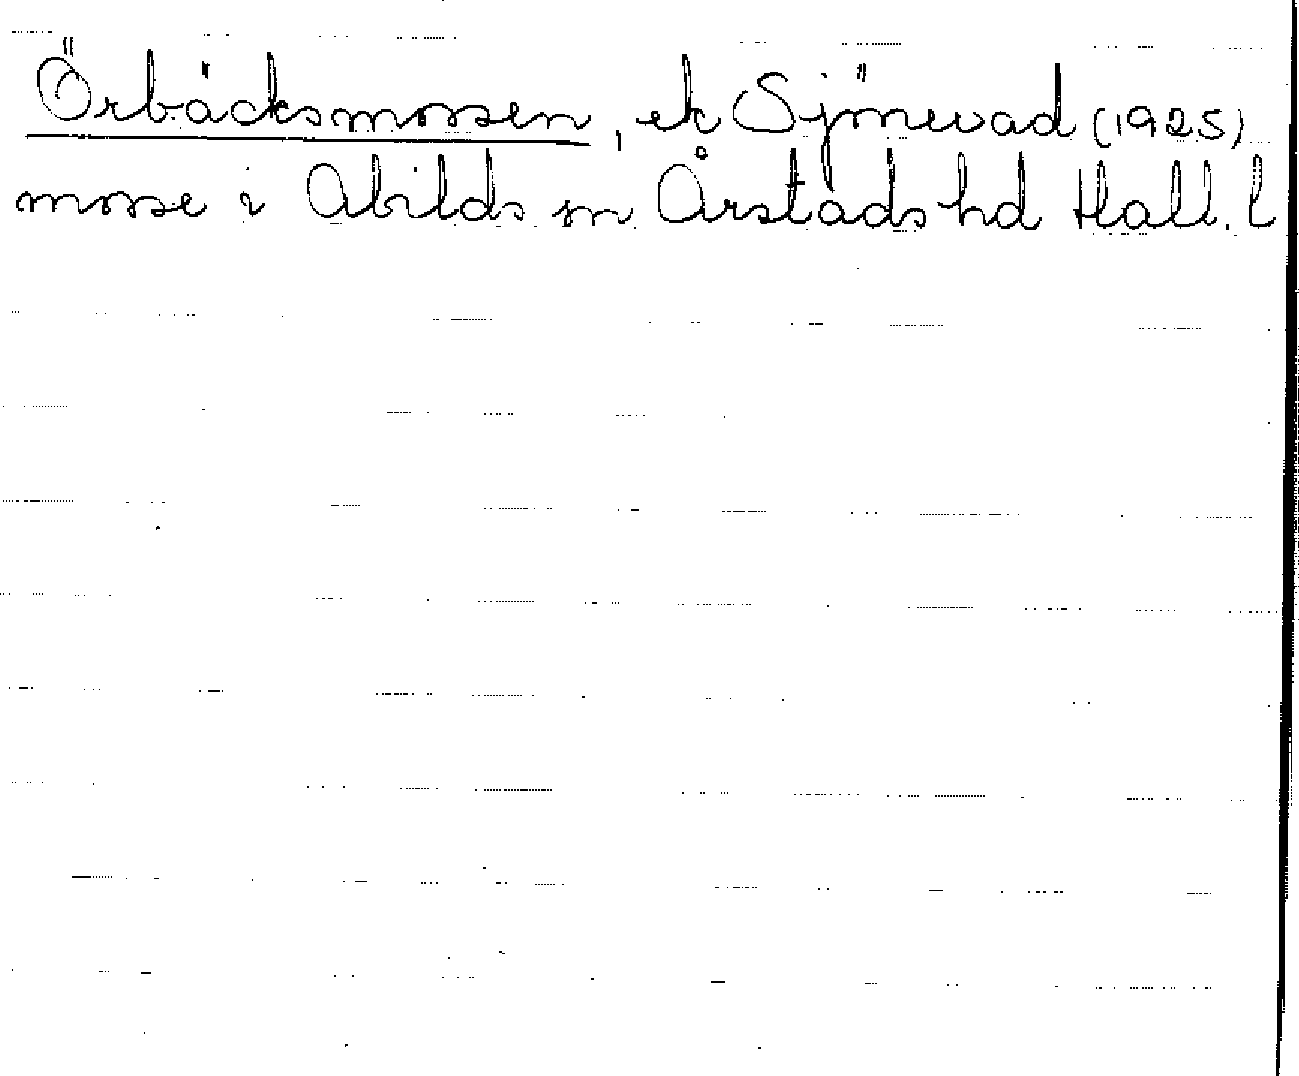 Örbäcksmossen, ek Sjönevad (1925)
mosse i Abilds sn Årstads hd Hall. l